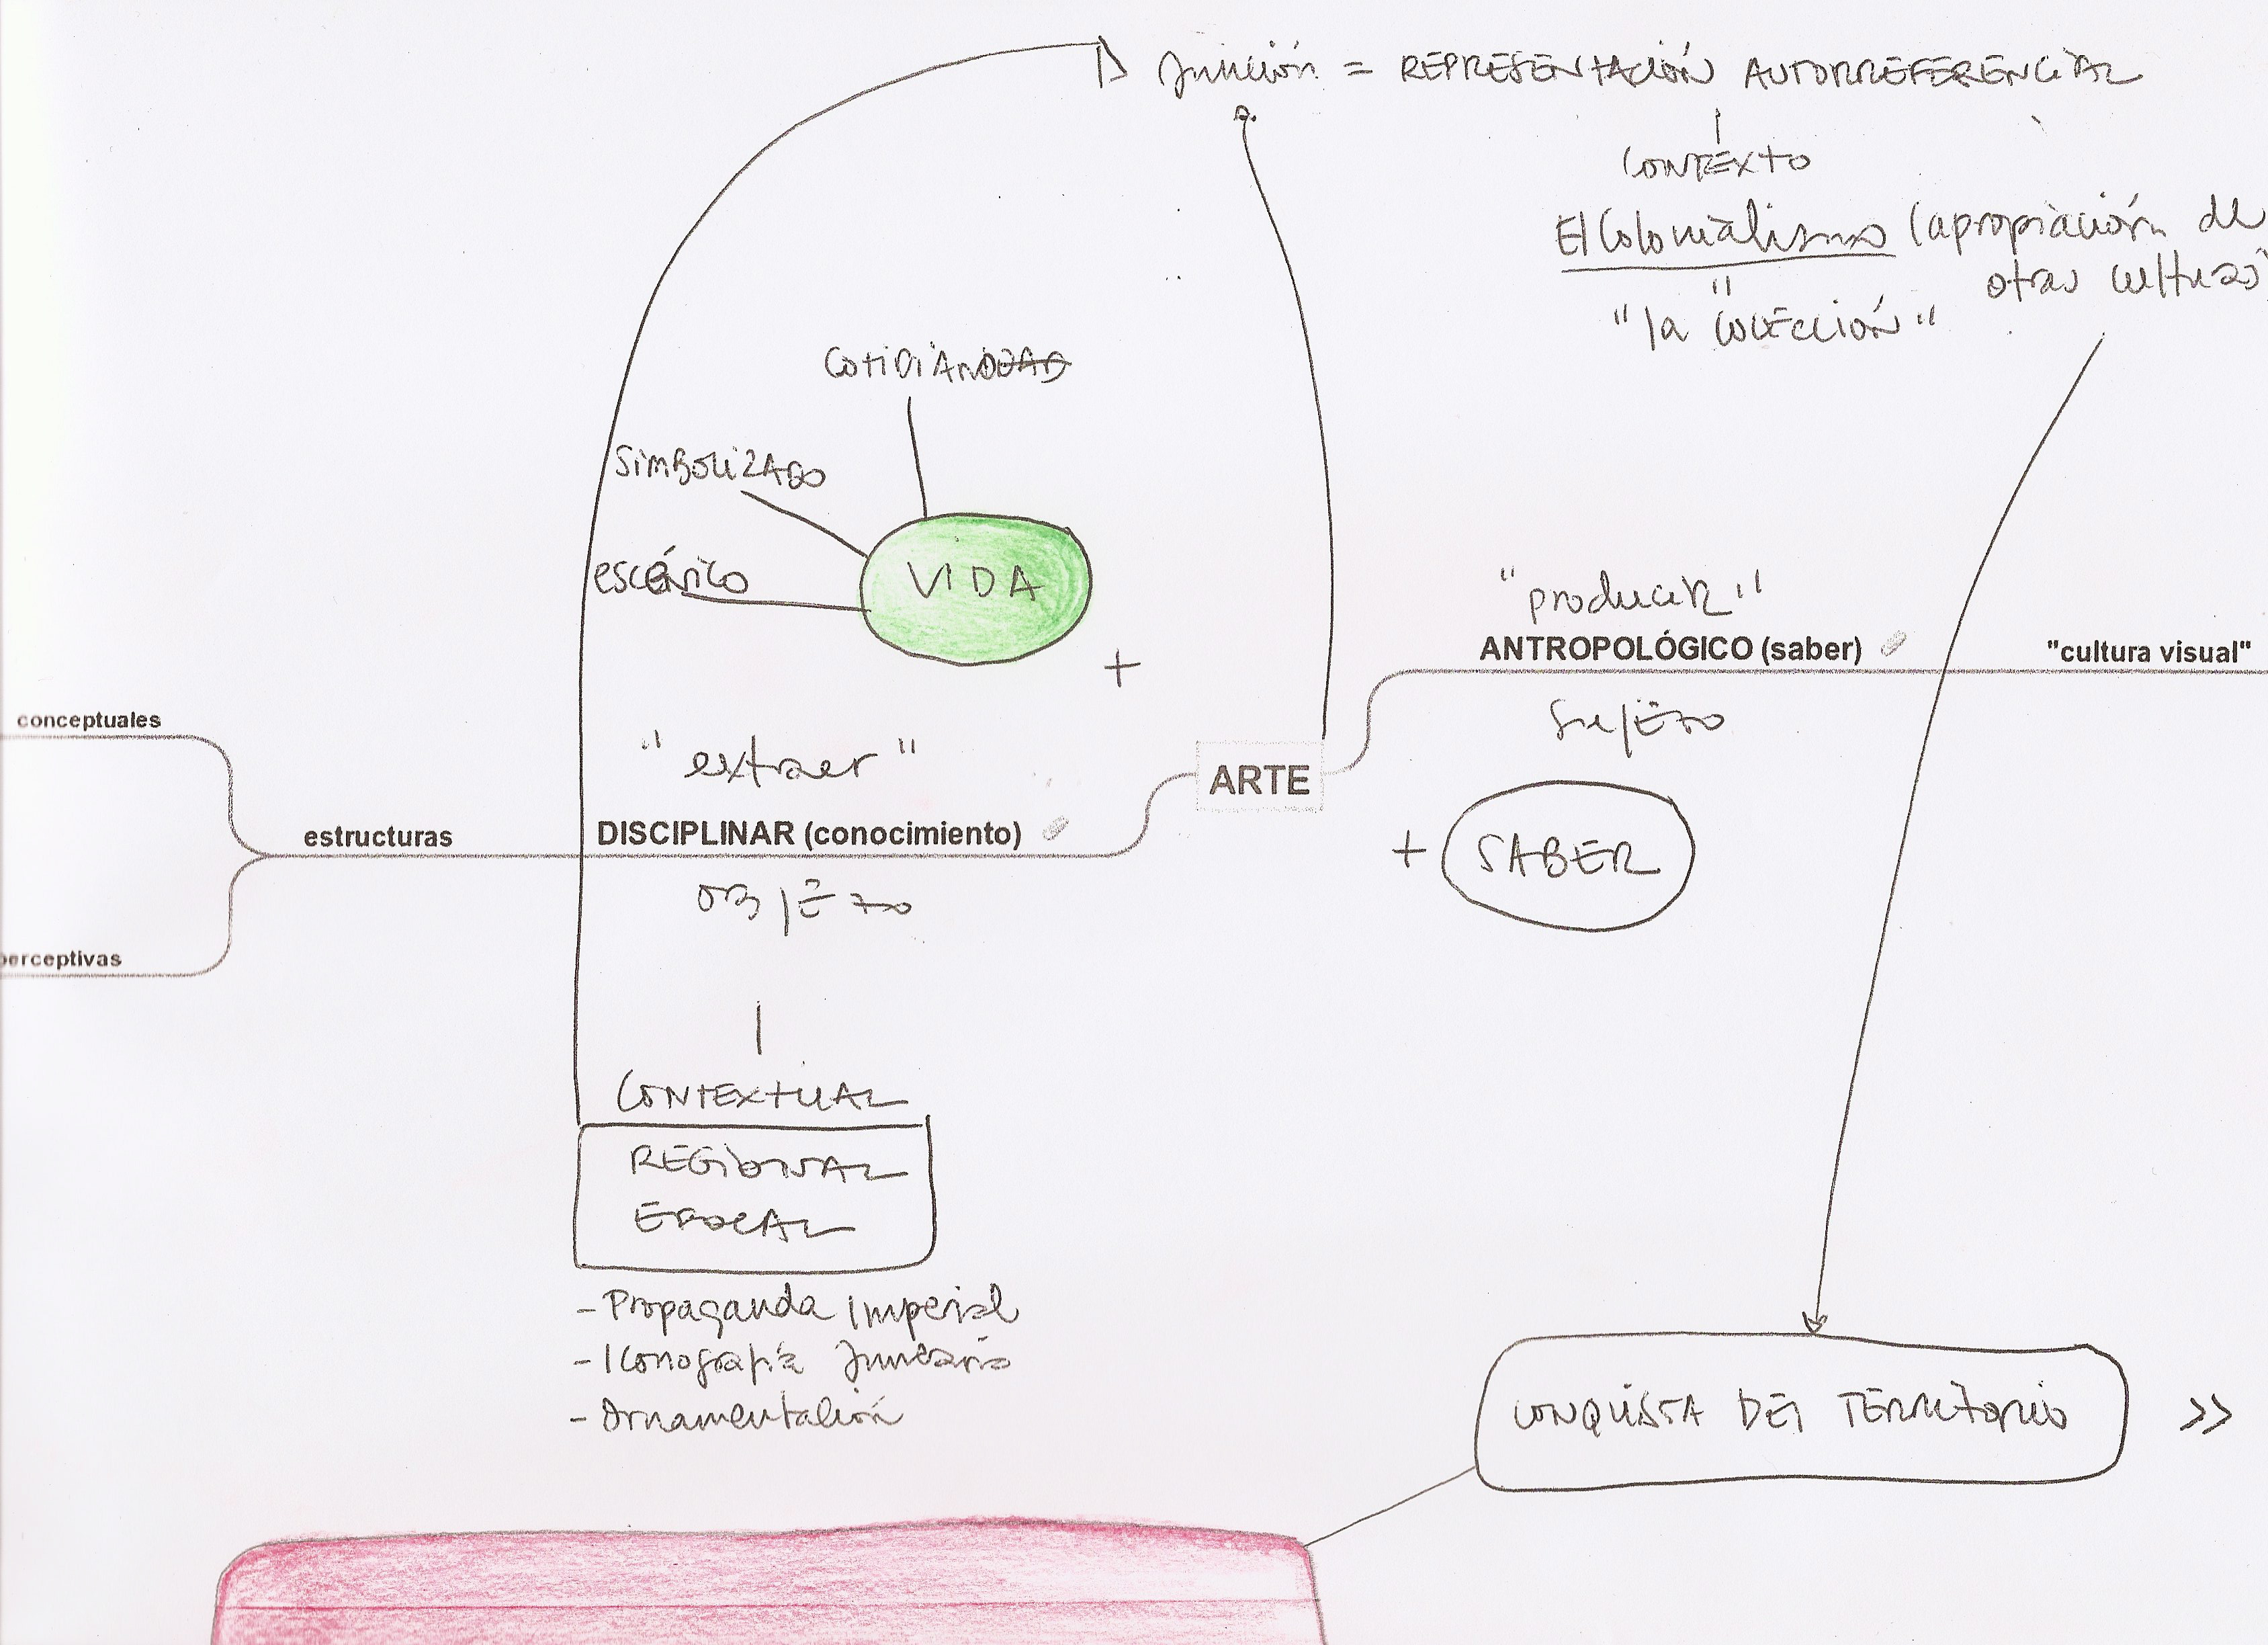 función = REPRESENTACIÓN AUTORREFERENCIAL
CONTEXTO
El Colonialismo (apropiación de
otras culturas)
"
"la COLECCIÓN"
COTIDIANO
SIMBOLIZADO
escénico
VIDA
+
"producir"
ANTROPOLÓGICO (saber)
"cultura visual"
SUJETO
conceptuales
"extraer"
ARTE
estructuras
DISCIPLINAR (conocimiento)
+ SABER
OBJETO
perceptivas
CONTEXTUAL
REGIONAL
EPOCAL
- Propaganda Imperial
- Iconografía funeraria
- Ornamentación
CONQUISTA DEL TERRITORIO >>